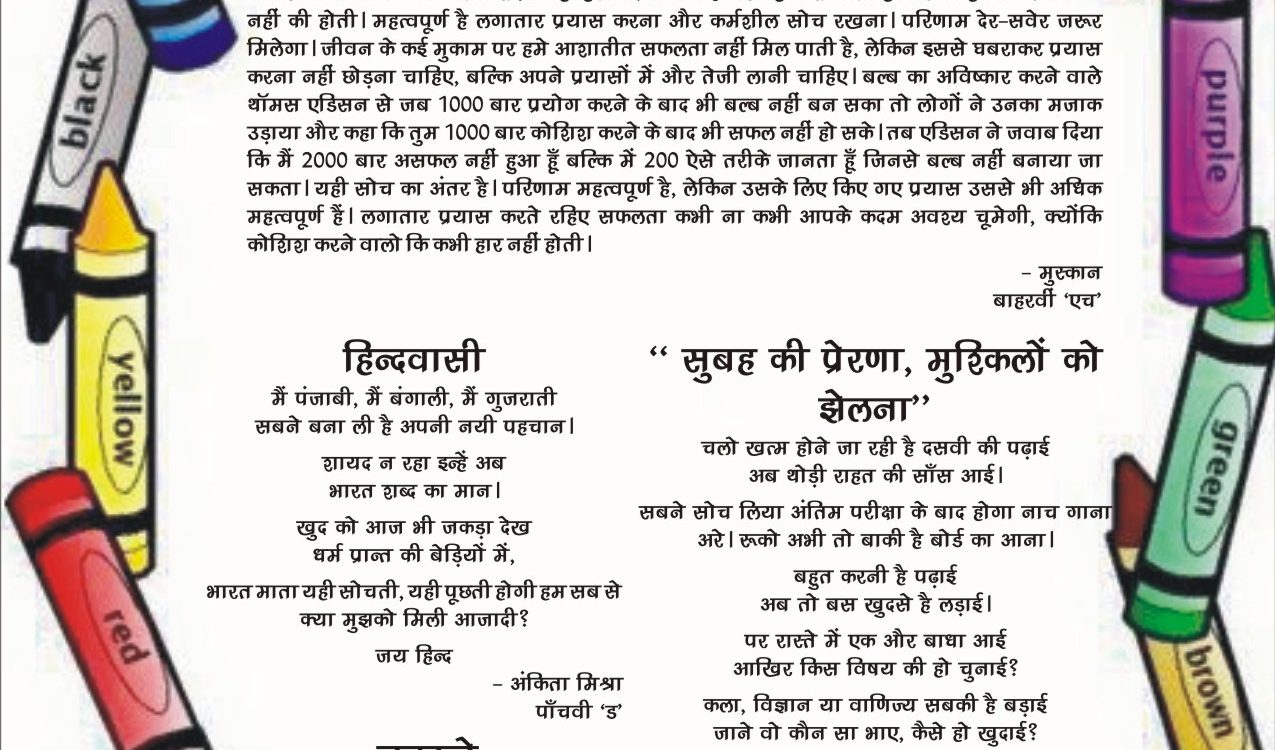 नहीं की होती। महत्वपूर्ण है लगातार प्रयास करना और कर्मशील सोच रखना। परिणाम देर-सवेर जरूर
मिलेगा। जीवन के कई मुकाम पर हमे आशातीत सफलता नहीं मिल पाती है, लेकिन इससे घबराकर प्रयास
करना नहीं छोड़ना चाहिए, बल्कि अपने प्रयासों में और तेजी लानी चाहिए। बल्ब का अविष्कार करने वाले
थॉमस एडिसन से जब 1000 बार प्रयोग करने के बाद भी बल्ब नहीं बन सका तो लोगों ने उनका मजाक
उड़ाया और कहा कि तुम 1000 बार कोशिश करने के बाद भी सफल नहीं हो सके। तब एडिसन ने जवाब दिया
कि मैं 2000 बार असफल नहीं हुआ हूँ बल्कि में 200 ऐसे तरीके जानता हूँ जिनसे बल्ब नहीं बनाया जा
सकता। यही सोच का अंतर है। परिणाम महत्वपूर्ण है, लेकिन उसके लिए किए गए प्रयास उससे भी अधिक
महत्वपूर्ण हैं। लगातार प्रयास करते रहिए सफलता कभी ना कभी आपके कदम अवश्य चूमेगी, क्योंकि
कोशिश करने वालो कि कभी हार नहीं होती।
- मुस्कान
बाहरवीं ‘एच’
हिन्दवासी
मैं पंजाबी, मैं बंगाली, मैं गुजराती
सबने बना ली है अपनी नयी पहचान।
शायद न रहा इन्हें अब
भारत शब्द का मान।
खुद को आज भी जकड़ा देख
धर्म प्रान्त की बेड़ियों में,
भारत माता यही सोचती, यही पूछती होगी हम सब से
क्या मुझको मिली आजादी?
जय हिन्द
- अंकिता मिश्रा
पाँचवी ‘ड’
“ सुबह की प्रेरणा, मुश्किलों को
झेलना”
चलो खत्म होने जा रही है दसवी की पढ़ाई
अब थोड़ी राहत की साँस आई।
सबने सोच लिया अंतिम परीक्षा के बाद होगा नाच गाना
अरे। रूको अभी तो बाकी है बोर्ड का आना।
बहुत करनी है पढ़ाई
अब तो बस खुदसे है लड़ाई।
पर रास्ते में एक और बाधा आई
आखिर किस विषय की हो चुनाई?
कला, विज्ञान या वाणिज्य सबकी है बड़ाई
जाने वो कौन सा भाए, कैसे हो खुदाई?
black
yellow
red
purple
green
brown